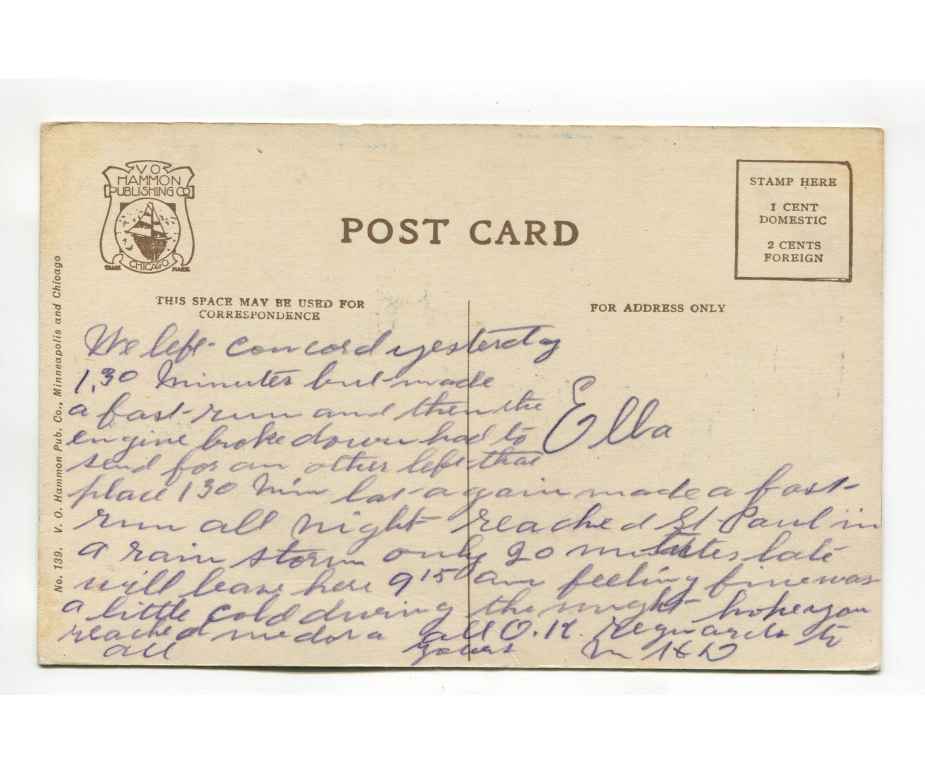 V O
HAMMON
PUBLISHING CO
CHICAGO
TRADE MARK
POST CARD
STAMP HERE
1 CENT
DOMESTIC
2 CENTS
FOREIGN
THIS SPACE MAY BE USED FOR
CORRESPONDENCE
FOR ADDRESS ONLY
No. 139. V. O. Hammon Pub. Co., Minneapolis and Chicago
Ella
We left concord yesterday
1,30 minutes but made
a fast run and then the
engine broke down had to
send for an other left that
place 130 min lat again made a fast
run all night reached St Paul in
a rain storm only 20 minutes late
will leave here 9 15 am feeling fine was
a little cold during the night hope you
reached medora all O.K. reguards to
all yours